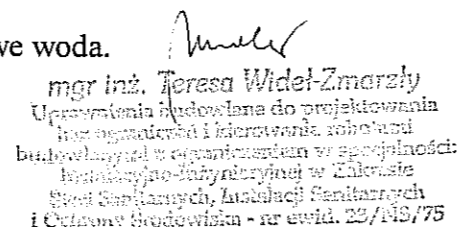 we woda.
mgr inż. Teresa Wideł-Zmarzły
Uprawnienia budowlane do projektowania
bez ograniczeń i kierowania robotami
budowlanymi z ograniczeniem w specjalności:
Instalacyjno-inżynieryjnej w Zakresie
Sieci Sanitarnych, Instalacji Sanitarnych
i Ochrony Środowiska - nr ewid. 23/NS/75